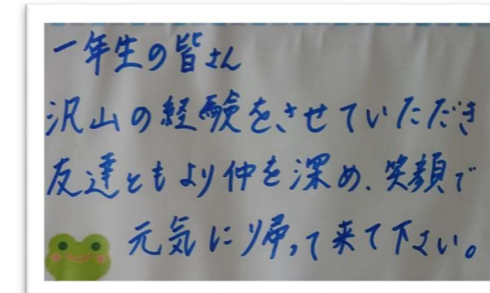 一年生の皆さん
沢山の経験をさせていただき
友達ともより仲を深め、笑顔で
元気に帰って来て下さい。